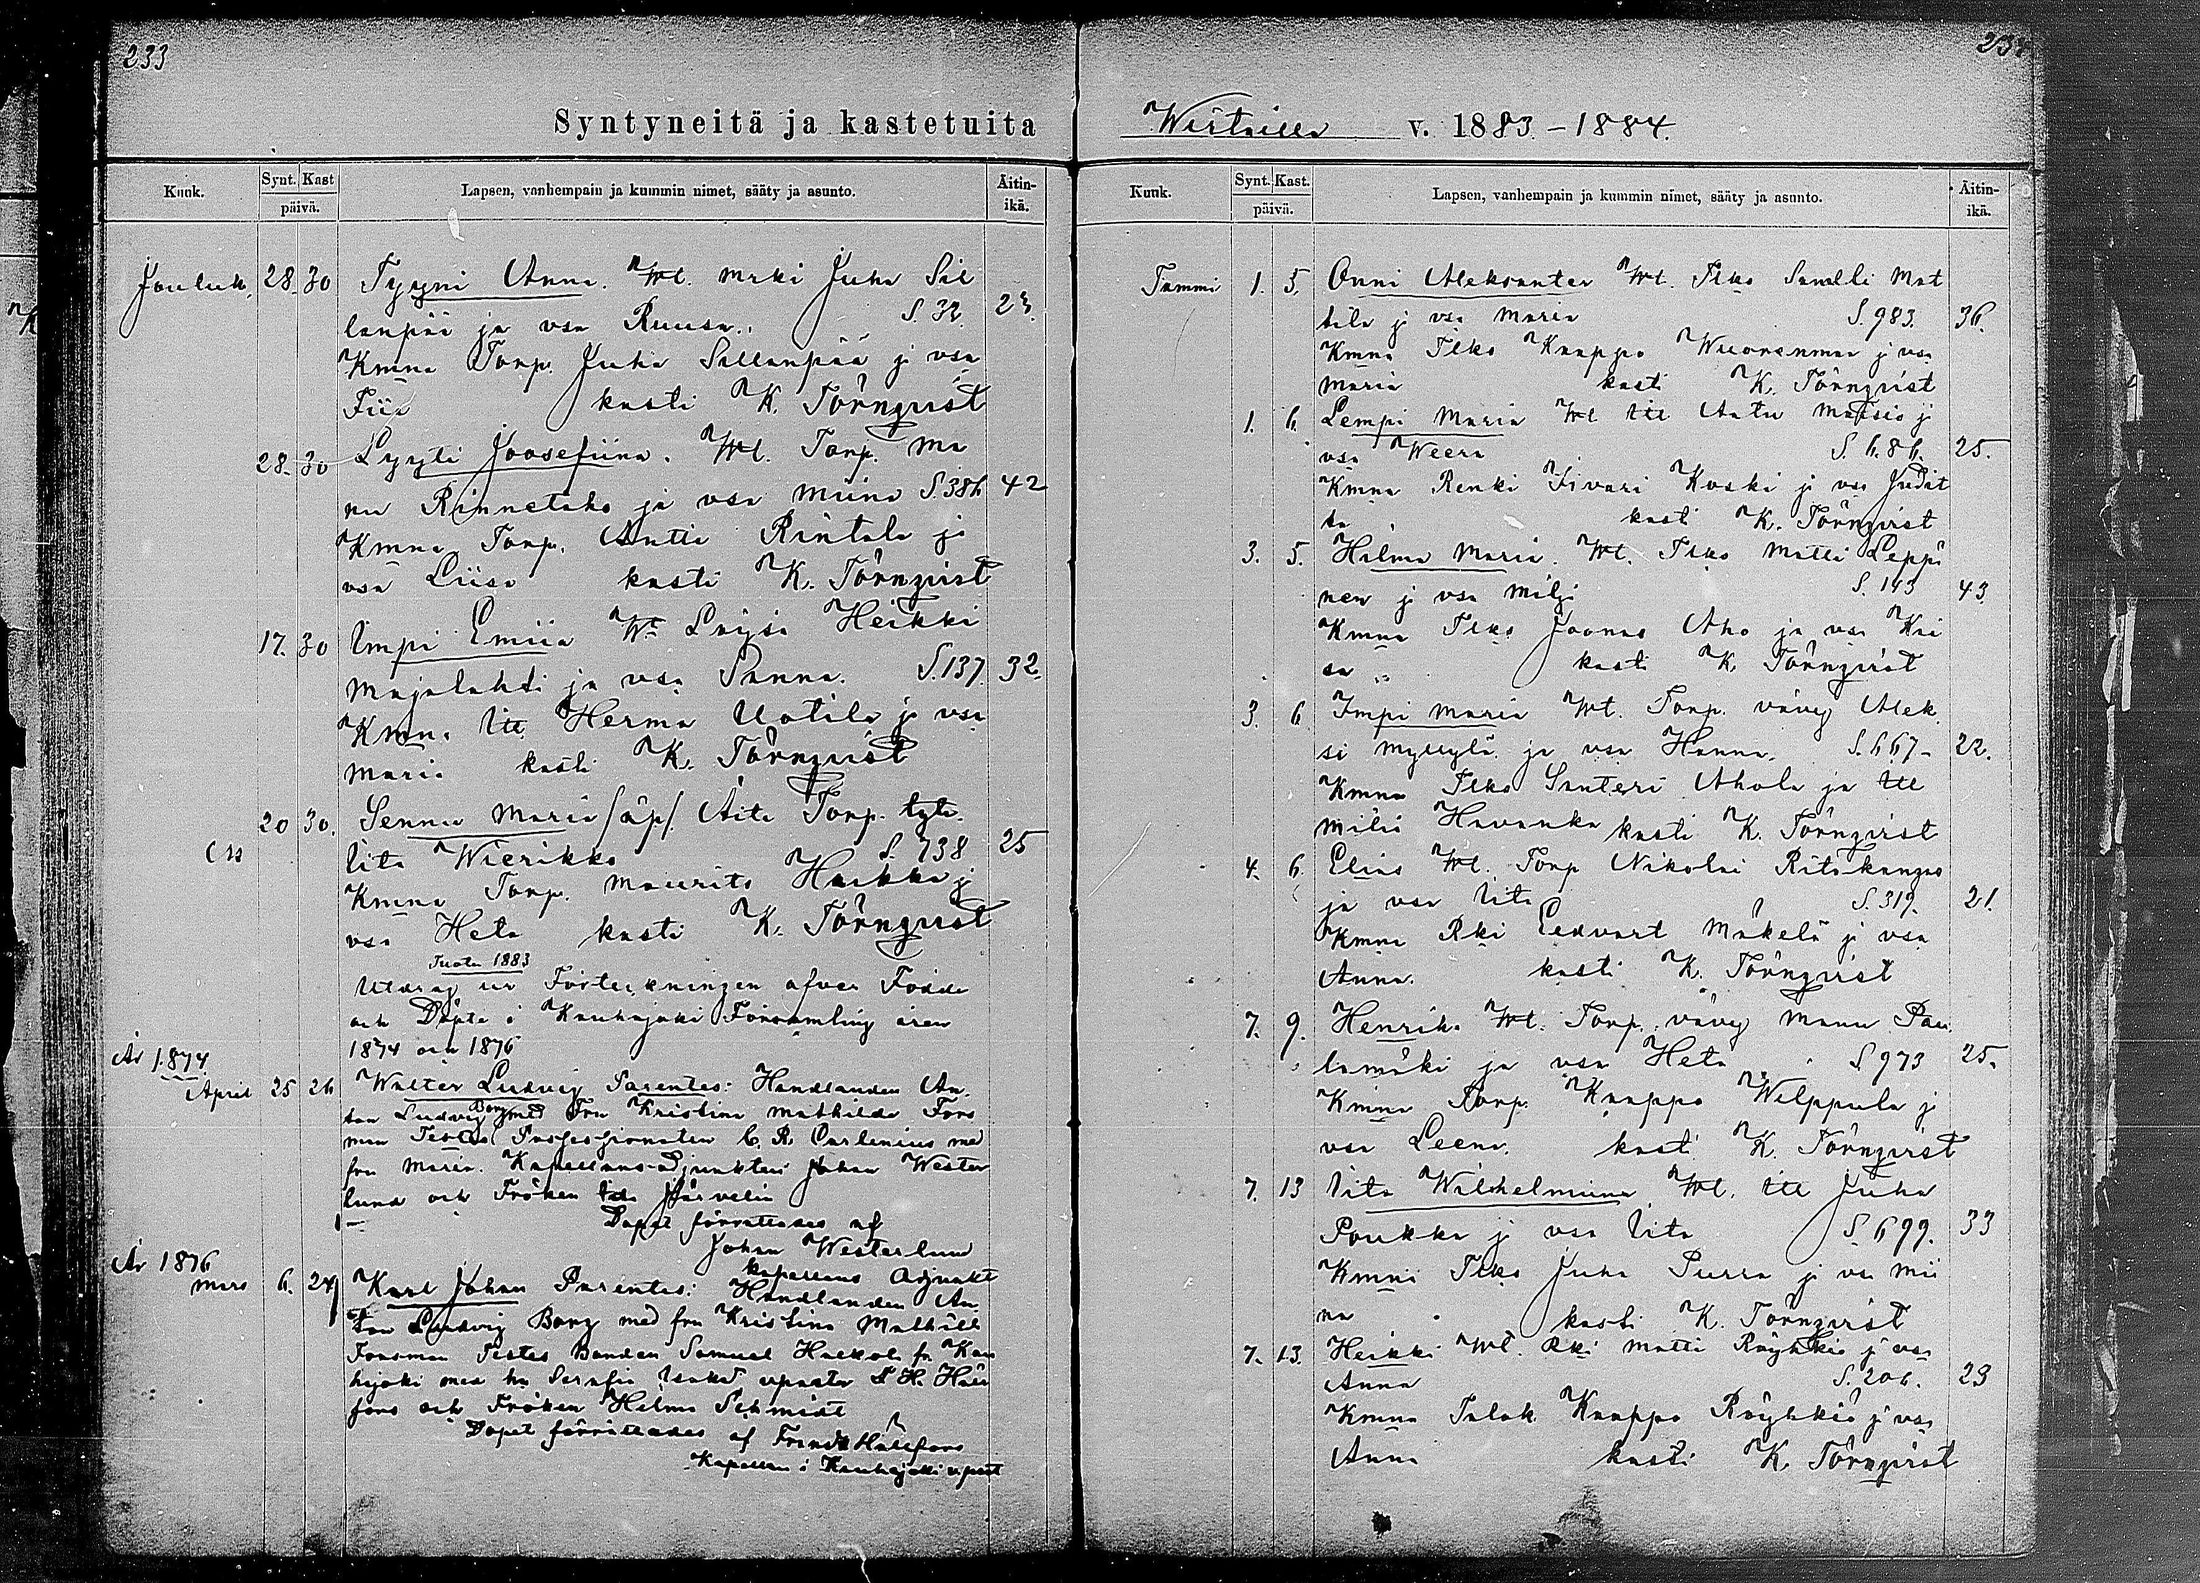 233
Syntyneitä ja kastetuita
Kuuk.
Synt. Kast
päivä.
Lapsen, vanhempain ja kummin nimet, sääty ja asunto.
Äitin-
ikä.
Jouluk. 28. 30 Tyyni Anna. Wt. mrki Juha Sil
lanpää ja vsa Ruusa. S. 32. 23.
Kmna Torp. Juha Sillanpää j vsa
Fiia kasti K. Törnqvist
28. 30 Lyyti Joosefiina. Wt. Torp. Ma
nu Rinnetaho ja vsa Miina S. 386 42
Kmna Torp. Antti Rintala ja
vsa Liisa kasti K. Törnqvist
17. 30 Impi Emiia Wt Löysi Heikki
Majalahti ja vsa Sanna. S. 137. 32.
Kmn. Itt Herma Uotila ja vsa
Maria kasti K. Törnqvist
20 30. Sennu Maria /äp/. Äiti Torp. tytt.
Iita Wierikko S. 738 25
Kmna Torp. Maurits j
vsa Heta kasti K. Törnqvist
Vuota 1883
Utdrag ur Förteckningen öfver Födde
och Döpte i Kauhajoki Församling åren
1874 och 1876
År 1874
April 25 26 Walter Ludvig Parentes: Handlanden An
ton Ludvig Borg med Fru Kristina Mathilda Fors
man Testes Possessionaten C. R. Carlenius med
fru Maria. Kapellans-Adjunkten Johan Wester
lund och Fröken Ida Järvelin
Dopet förrättades af
Johan Westerlund
kapellans Adjunkt
År 1876
Mars 6. 24 Karl Johan Parentes: Handlanden An
ton Ludvig Borg med fru Kristina Mathilda
Forsman Testes Bonden Samuel fr. Kau
hajoki med hu Serafia
fors och Fröken Helma Schmidt
Dopet förrättades af Hällfors
Kapellan i Kauhajoki
Wirtailla v. 1883-1884.
Kuuk.
Synt. Kast.
päivä.
Lapsen, vanhempain ja kummin nimet, sääty ja asunto.
Äitin-
ikä.
Tammi 1. 5. Onni Aleksanter Wt. Tlko Samelli Mat
tila j vsa Maria S. 983. 36.
Kmna Tlko Kaappo Wuorenmaa j vsa
Maria kasti K. Törnqvist
1. 6. Lempi Maria Wt Itt Antu j
vsa Weera S. 686. 25.
Kmna Renki Iivari Koski j vsa Judit
ta kasti K. Törnqvist
3. 5. Halma Maria. Wt. Tlko Matti Leppi
nen j vsa Milji S. 143 43.
Kmna Tlko Joonas Aho ja vsa Kai
sa kasti K. Törnqvist
3. 6 Impi Maria Wt. Torp. vävy Alek
si Myllylä ja vsa Hanna. S. 667- 22.
Kmna Tlko Santeri Ahola ja Itt
Milia Havanka kasti K. Törnqvist
4. 6. Elias Wt. Torp Nikolai Ritakangas
ja vsa Iita S. 319. 21.
Kmna Rki Eedvart Mäkelä j vsa
Anna. kasti K. Törnqvist
7. 9. Henrik. Wt. Torp. vävy Manu Pau
lamäki ja vsa Heta S. 973 25.
Kmna Torp. Kaappo Wilppula j
vsa Leena. kasti K. Törnqvist
7. 13 Iita Wilhelmiina Wt. Itt Juha
Poukka j vsa Iita S. 699. 33
Kmni Tlko Juha Purra j vsa Mii
na kasti K. Törnqvist
7. 13. Heikki Wt. Rki Matti Röyhkiö j vsa
Anna S. 206. 23
Kmna Talok Kaappo Röyhkiö j vsa
Anna kasti K. Törnqvist